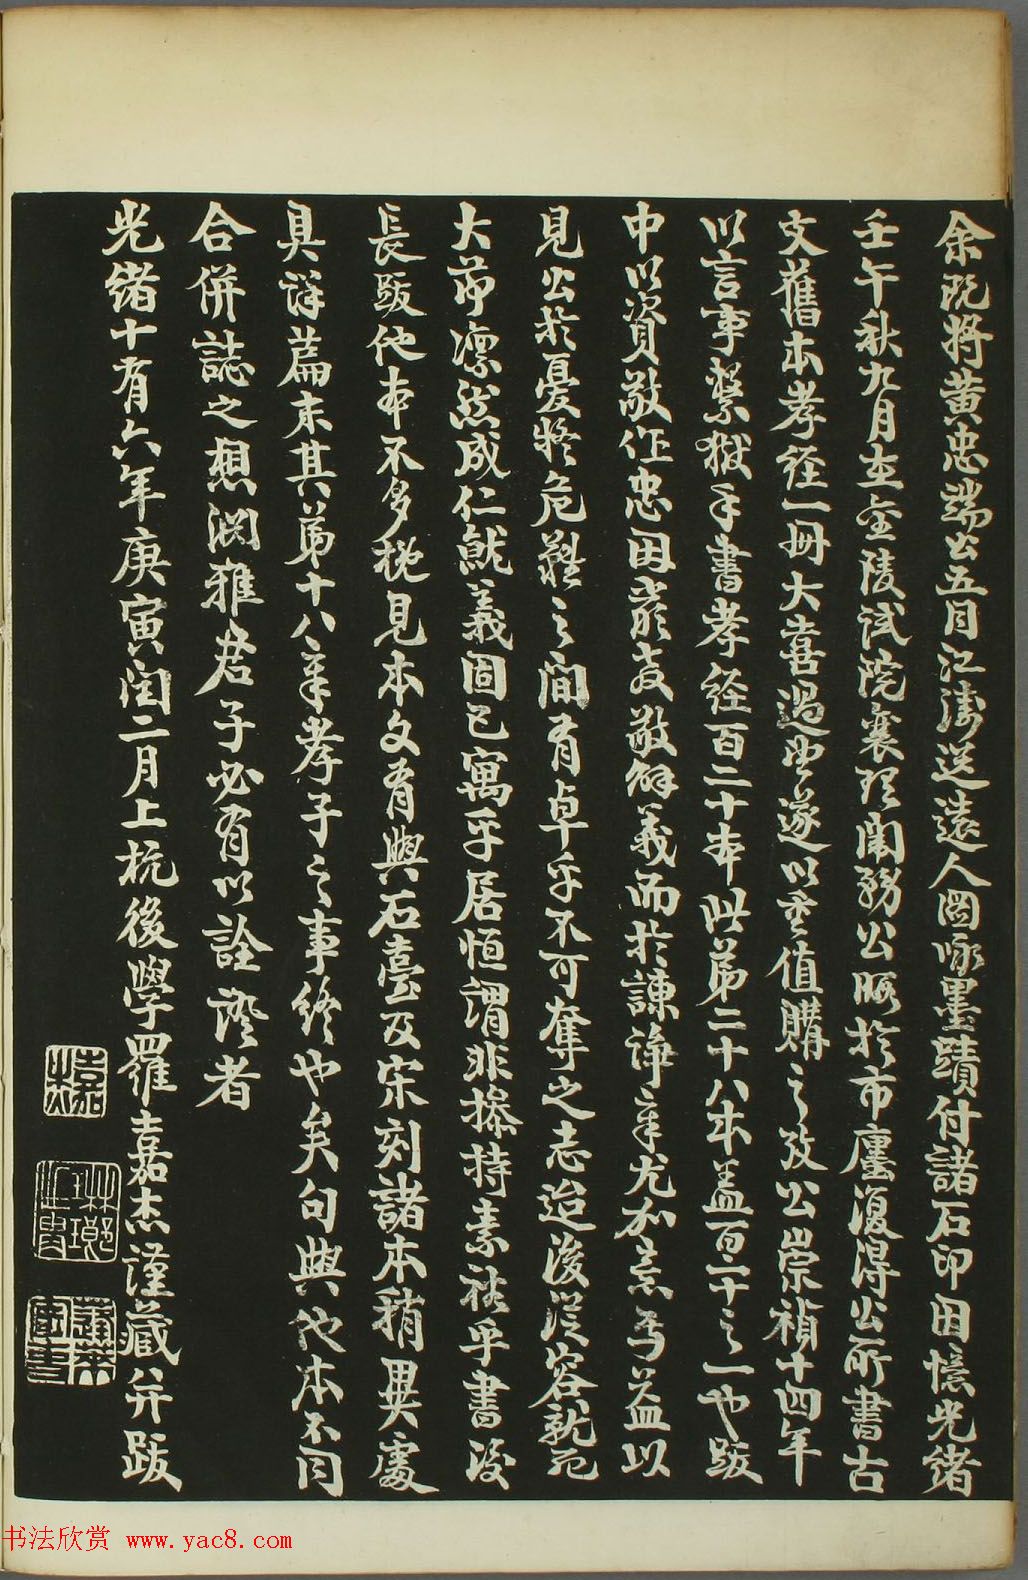 余既將黃忠端公五月江濤送遠人圖詠墨蹟付諸石印因憶光緒
壬午秋九月在金陵試院襄理闈務公暇於市廛復得公所書古
文舊本孝經一冊大喜過望遂以重值購之攷公崇禎十四年
以言事繫獄手書孝經百二十本此第二十八本蓋百二十之一也跋
中以資敬作忠因嚴教敬解義而於諫諍章尤加意焉益以
見公於憂疑危難之間有卓乎不可奪之志迨後從容就死
大節凜然成仁就義固已寓乎居恒謂非操持素裕乎書後
長跋他本不多概見本文有與石臺及宋刻諸本稍異處
具詳篇末其第十八章孝子之事終也矣句與他本不同
合併誌之想淵雅君子必有以詮證者
光緒十有六年庚寅閏二月上杭後學羅嘉杰謹藏并跋
嘉杰
書法欣赏 www.yac8.com